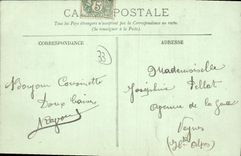 CARTE POSTALE
Tous les Pays étrangers n'acceptent pas la Correspondance au recto.
(Se renseigner à la Poste)
CORRESPONDANCE
ADRESSE
33
Bonjour Cousinette
Doux baiser
Mademoiselle
Joséphine Pellot
Agence de la Gare
Veynes
(Htes Alpes)